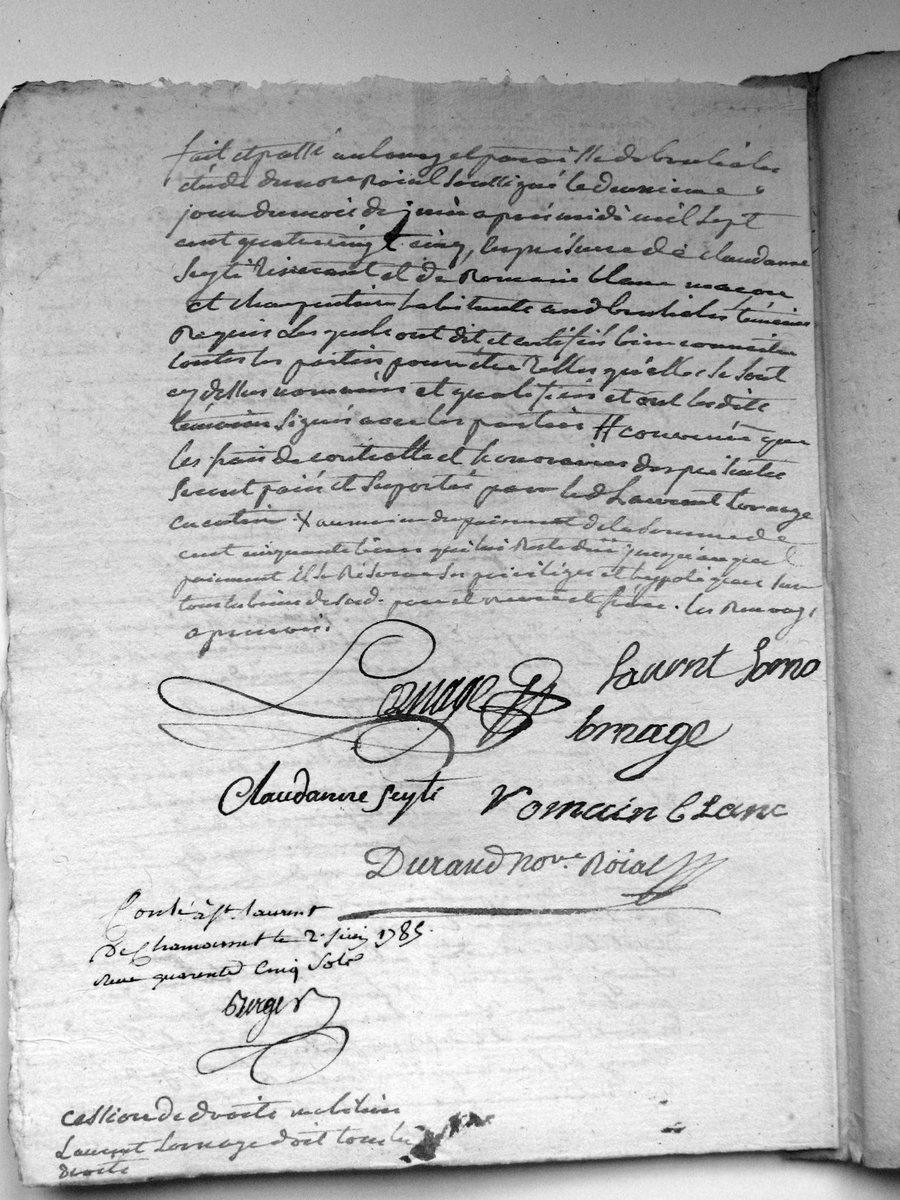 fait et passé au bourg et paroisse de brulioles
étude du no.re Roial soussigné le deuxieme
jour du mois de juin aprés midi mil sept
cent quatre vingt cinq, en présence de claudanne
Seyté et de Romain blanc macon
et charpentier habitants aud brulioles témoins
Requis Lesquels ont dit et certifiés bien connoitre
toutes les parties pour être telles qu'elles se sont
cy dessus nommées et qualifiées et ont lesdits
témoins signés avec les parties # convenu que
les frais de controlle et honoraires des présentes
seront paiés et suportés par led Laurent Lornage
X au moien du paiement de la somme de
cent cinquante livres qui lui Reste düe jusqu'au quel
paiement il se Réserve ses privilèges et hypotèques sur
tous les biens de sad.
aprouvés.
Lornage Laurent Lorno
lornage
Claudanne Seyté Romain blanc
Durand no.re Röial
Conlé à st. Laurent
De Chamousset le 2. juin 1785.
Reçu quarente Cinq Sols
berger
cession de droits mobiliers
Laurent Lornage doit tous les
droits